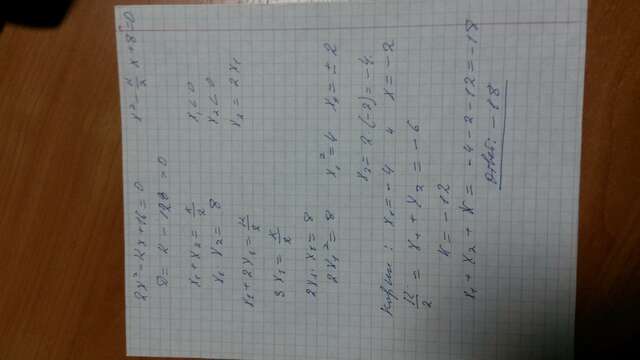 2x² - кx + 16 = 0    x² - к/2 x + 8 = 0
D = к - 128 > 0
x₁ + x₂ = к/2    x₁ < 0
x₁ · x₂ = 8    x₂ < 0
x₁ + 2x₁ = к/2    x₂ = 2x₁
3x₁ = к/2
2x₁ · x₁ = 8
2x₁² = 8    x₁² = 4    x₁ = ± 2
x₂ = 2·(-2) = -4
Корни: x₁ = -4 и x = -2
к/2 = x₁ + x₂ = -6
к = -12
x₁ + x₂ + к = -4 - 2 - 12 = -18
Ответ: -18